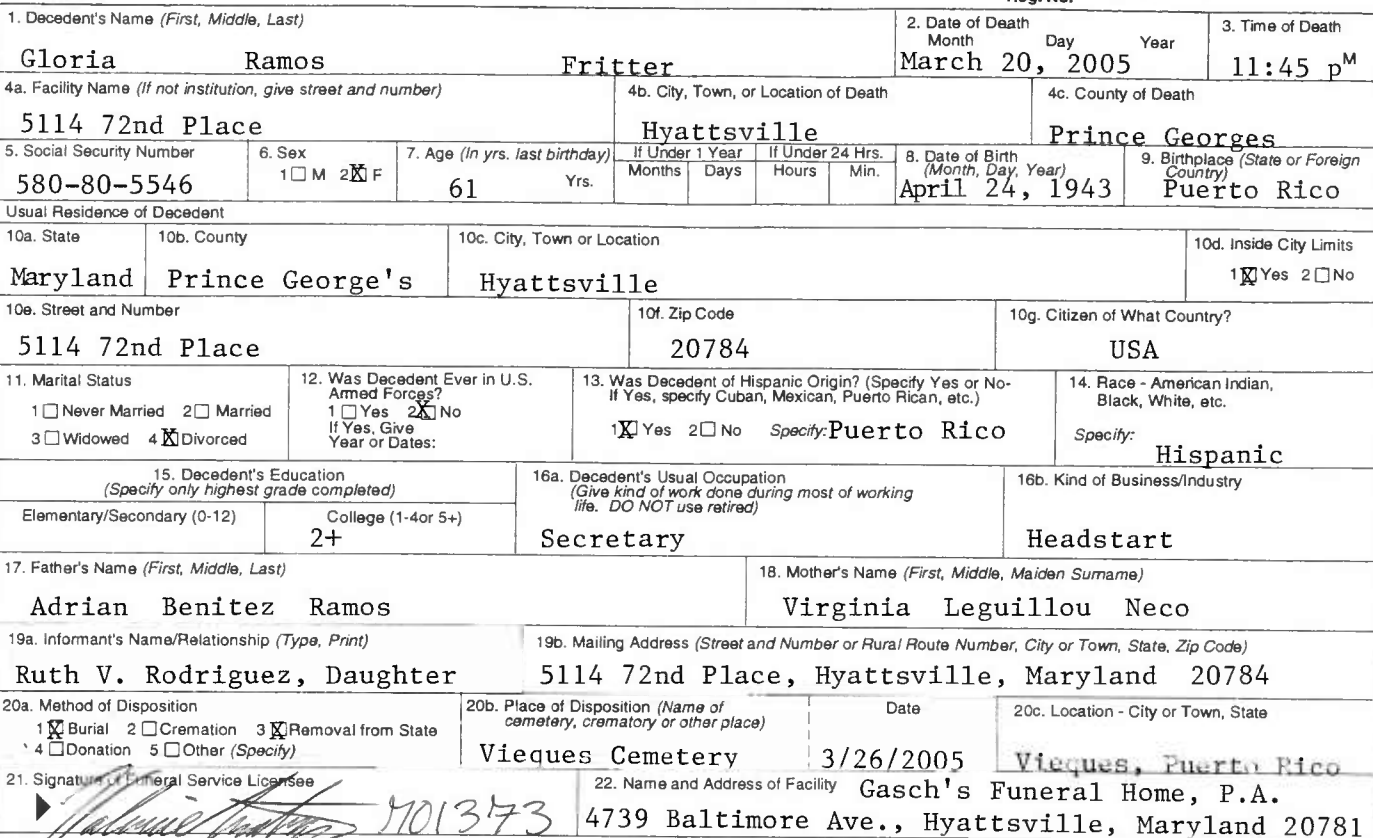 1. Decedent's Name (First, Middle, Last)
Gloria Ramos Fritter
2. Date of Death
Month Day Year
March 20, 2005
3. Time of Death
11:45 pM
4a. Facility Name (If not institution, give street and number)
5114 72nd Place
4b. City, Town, or Location of Death
Hyattsville
4c. County of Death
Prince Georges
5. Social Security Number
580-80-5546
6. Sex
1☐ M 2☒ F
7. Age (In yrs. last birthday)
61 Yrs.
If Under 1 Year
Months Days
If Under 24 Hrs.
Hours Min.
8. Date of Birth
(Month, Day, Year)
April 24, 1943
9. Birthplace (State or Foreign
Country)
Puerto Rico
Usual Residence of Decedent
10a. State
Maryland
10b. County
Prince George's
10c. City, Town or Location
Hyattsville
10d. Inside City Limits
1☒Yes 2☐No
10e. Street and Number
5114 72nd Place
10f. Zip Code
20784
10g. Citizen of What Country?
USA
11. Marital Status
1☐Never Married 2☐Married
3☐Widowed 4☒Divorced
12. Was Decedent Ever in U.S.
Armed Forces?
1☐Yes 2☒No
If Yes, Give
Year or Dates:
13. Was Decedent of Hispanic Origin? (Specify Yes or No-
If Yes, specify Cuban, Mexican, Puerto Rican, etc.)
1☒Yes 2☐No Specify:Puerto Rico
14. Race - American Indian,
Black, White, etc.
Specify:
Hispanic
15. Decedent's Education
(Specify only highest grade completed)
Elementary/Secondary (0-12)
College (1-4or 5+)
2+
16a. Decedent's Usual Occupation
(Give kind of work done during most of working
life. DO NOT use retired)
Secretary
16b. Kind of Business/Industry
Headstart
17. Father's Name (First, Middle, Last)
Adrian Benitez Ramos
18. Mother's Name (First, Middle, Maiden Surname)
Virginia Leguillou Neco
19a. Informant's Name/Relationship (Type, Print)
Ruth V. Rodriguez, Daughter
19b. Mailing Address (Street and Number or Rural Route Number, City or Town, State, Zip Code)
5114 72nd Place, Hyattsville, Maryland 20784
20a. Method of Disposition
1☒Burial 2☐Cremation 3☒Removal from State
4☐Donation 5☐Other (Specify)
20b. Place of Disposition (Name of
cemetery, crematory or other place)
Vieques Cemetery
Date
3/26/2005
20c. Location - City or Town, State
Vieques, Puerto Rico
21. Signature of Funeral Service Licensee
M01373
22. Name and Address of Facility Gasch's Funeral Home, P.A.
4739 Baltimore Ave., Hyattsville, Maryland 20781